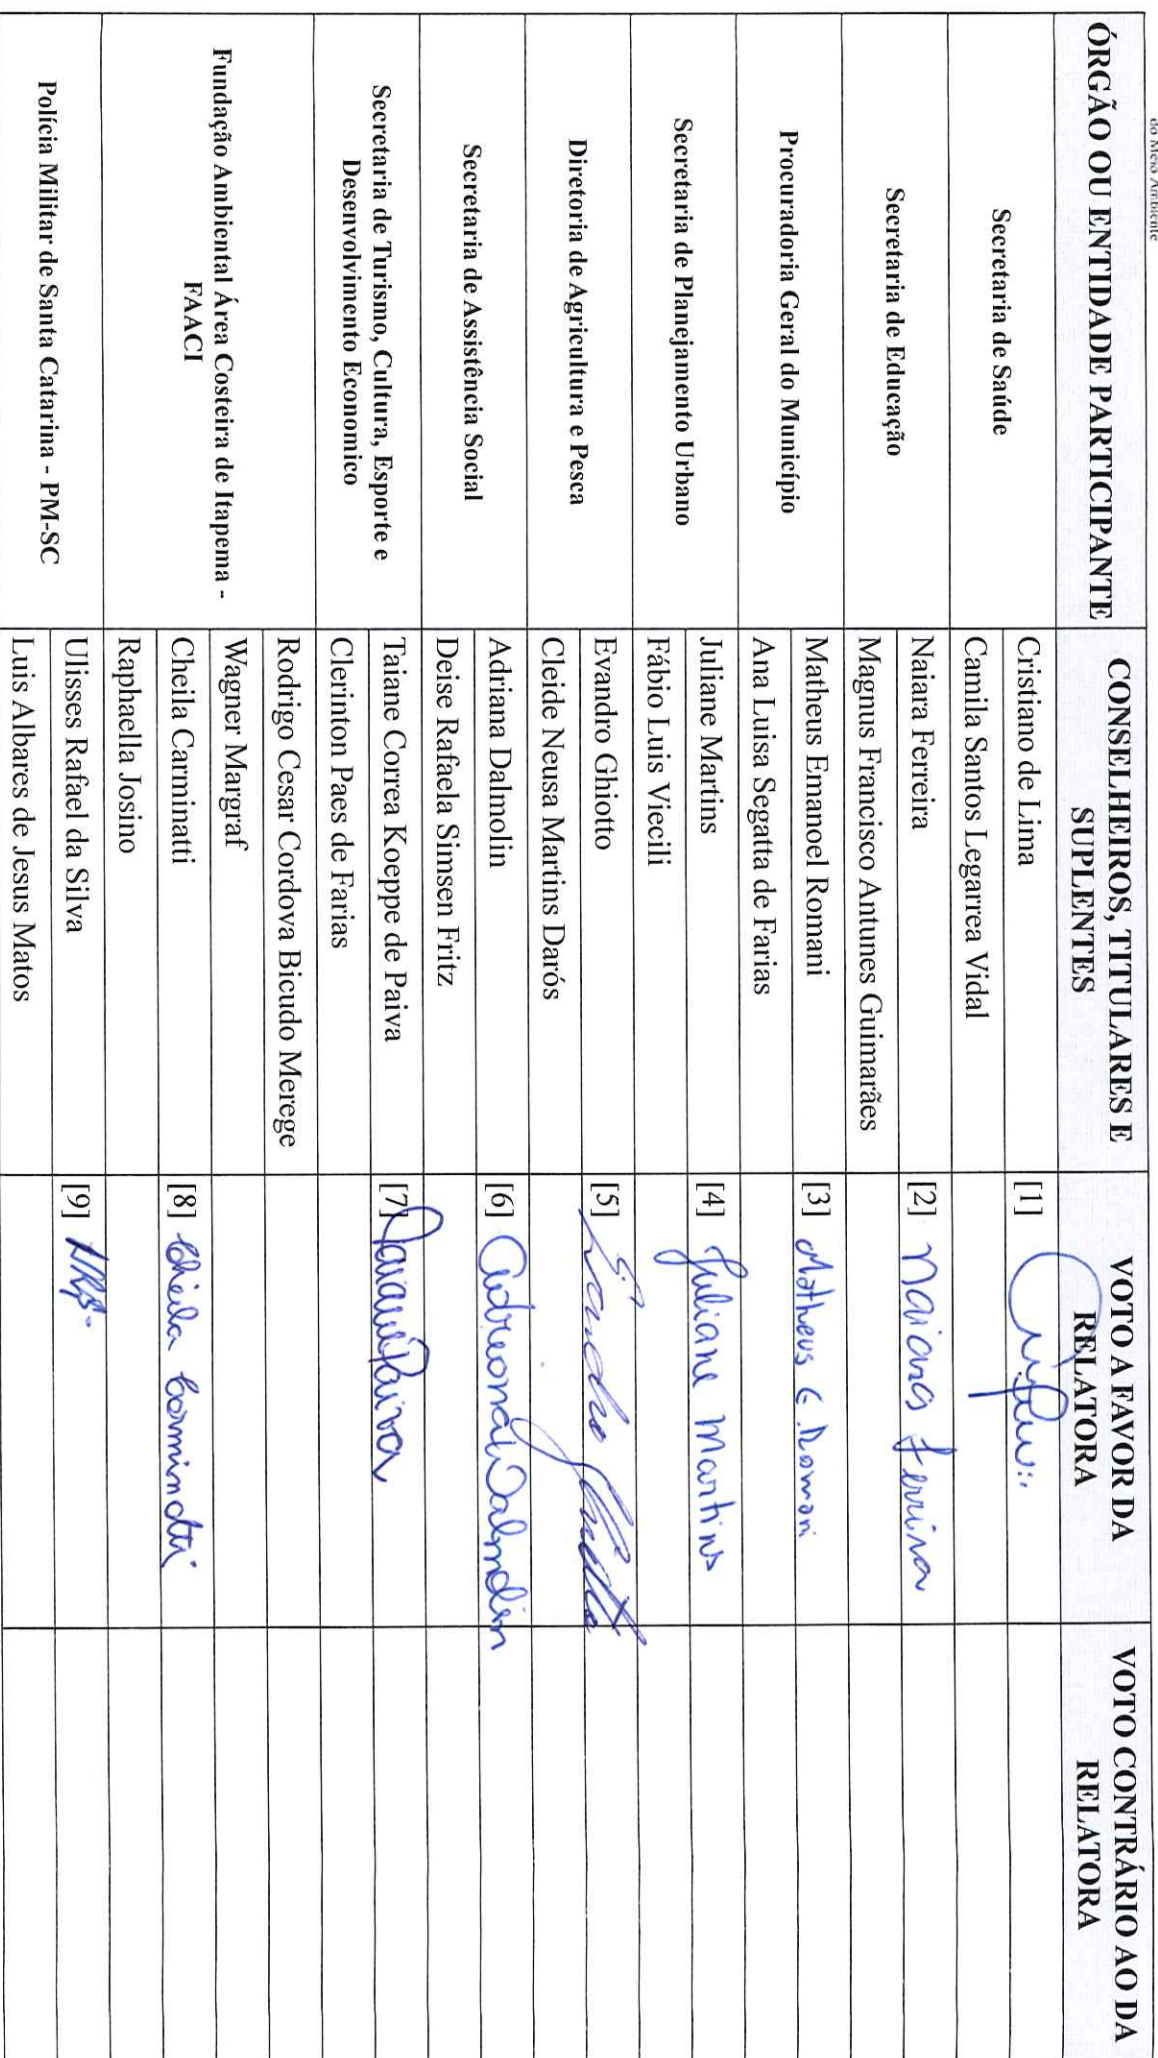 do Meio Ambiente
ÓRGÃO OU ENTIDADE PARTICIPANTE
CONSELHEIROS, TITULARES E
SUPLENTES
VOTO A FAVOR DA
RELATORA
VOTO CONTRÁRIO AO DA
RELATORA
Secretaria de Saúde
Cristiano de Lima
[1]
Camila Santos Legarrea Vidal
Secretaria de Educação
Naiara Ferreira
[2] Naiara Ferreira
Magnus Francisco Antunes Guimarães
Procuradoria Geral do Município
Matheus Emanoel Romani
[3] Matheus E. Romani
Ana Luisa Segatta de Farias
Secretaria de Planejamento Urbano
Juliane Martins
[4] Juliane Martins
Fábio Luis Viecili
Diretoria de Agricultura e Pesca
Evandro Ghiotto
[5] Evandro Ghiotto
Cleide Neusa Martins Darós
Secretaria de Assistência Social
Adriana Dalmolin
[6] Adriana Dalmolin
Deise Rafaela Simsen Fritz
Secretaria de Turismo, Cultura, Esporte e
Desenvolvimento Economico
Taiane Correa Koeppe de Paiva
[7] Taiane Paiva
Clerinton Paes de Farias
Fundação Ambiental Área Costeira de Itapema -
FAACI
Rodrigo Cesar Cordova Bicudo Merege
Wagner Margraf
Cheila Carminatti
[8] Cheila Carminatti
Raphaella Josino
Polícia Militar de Santa Catarina - PM-SC
Ulisses Rafael da Silva
[9]
Luis Albares de Jesus Matos